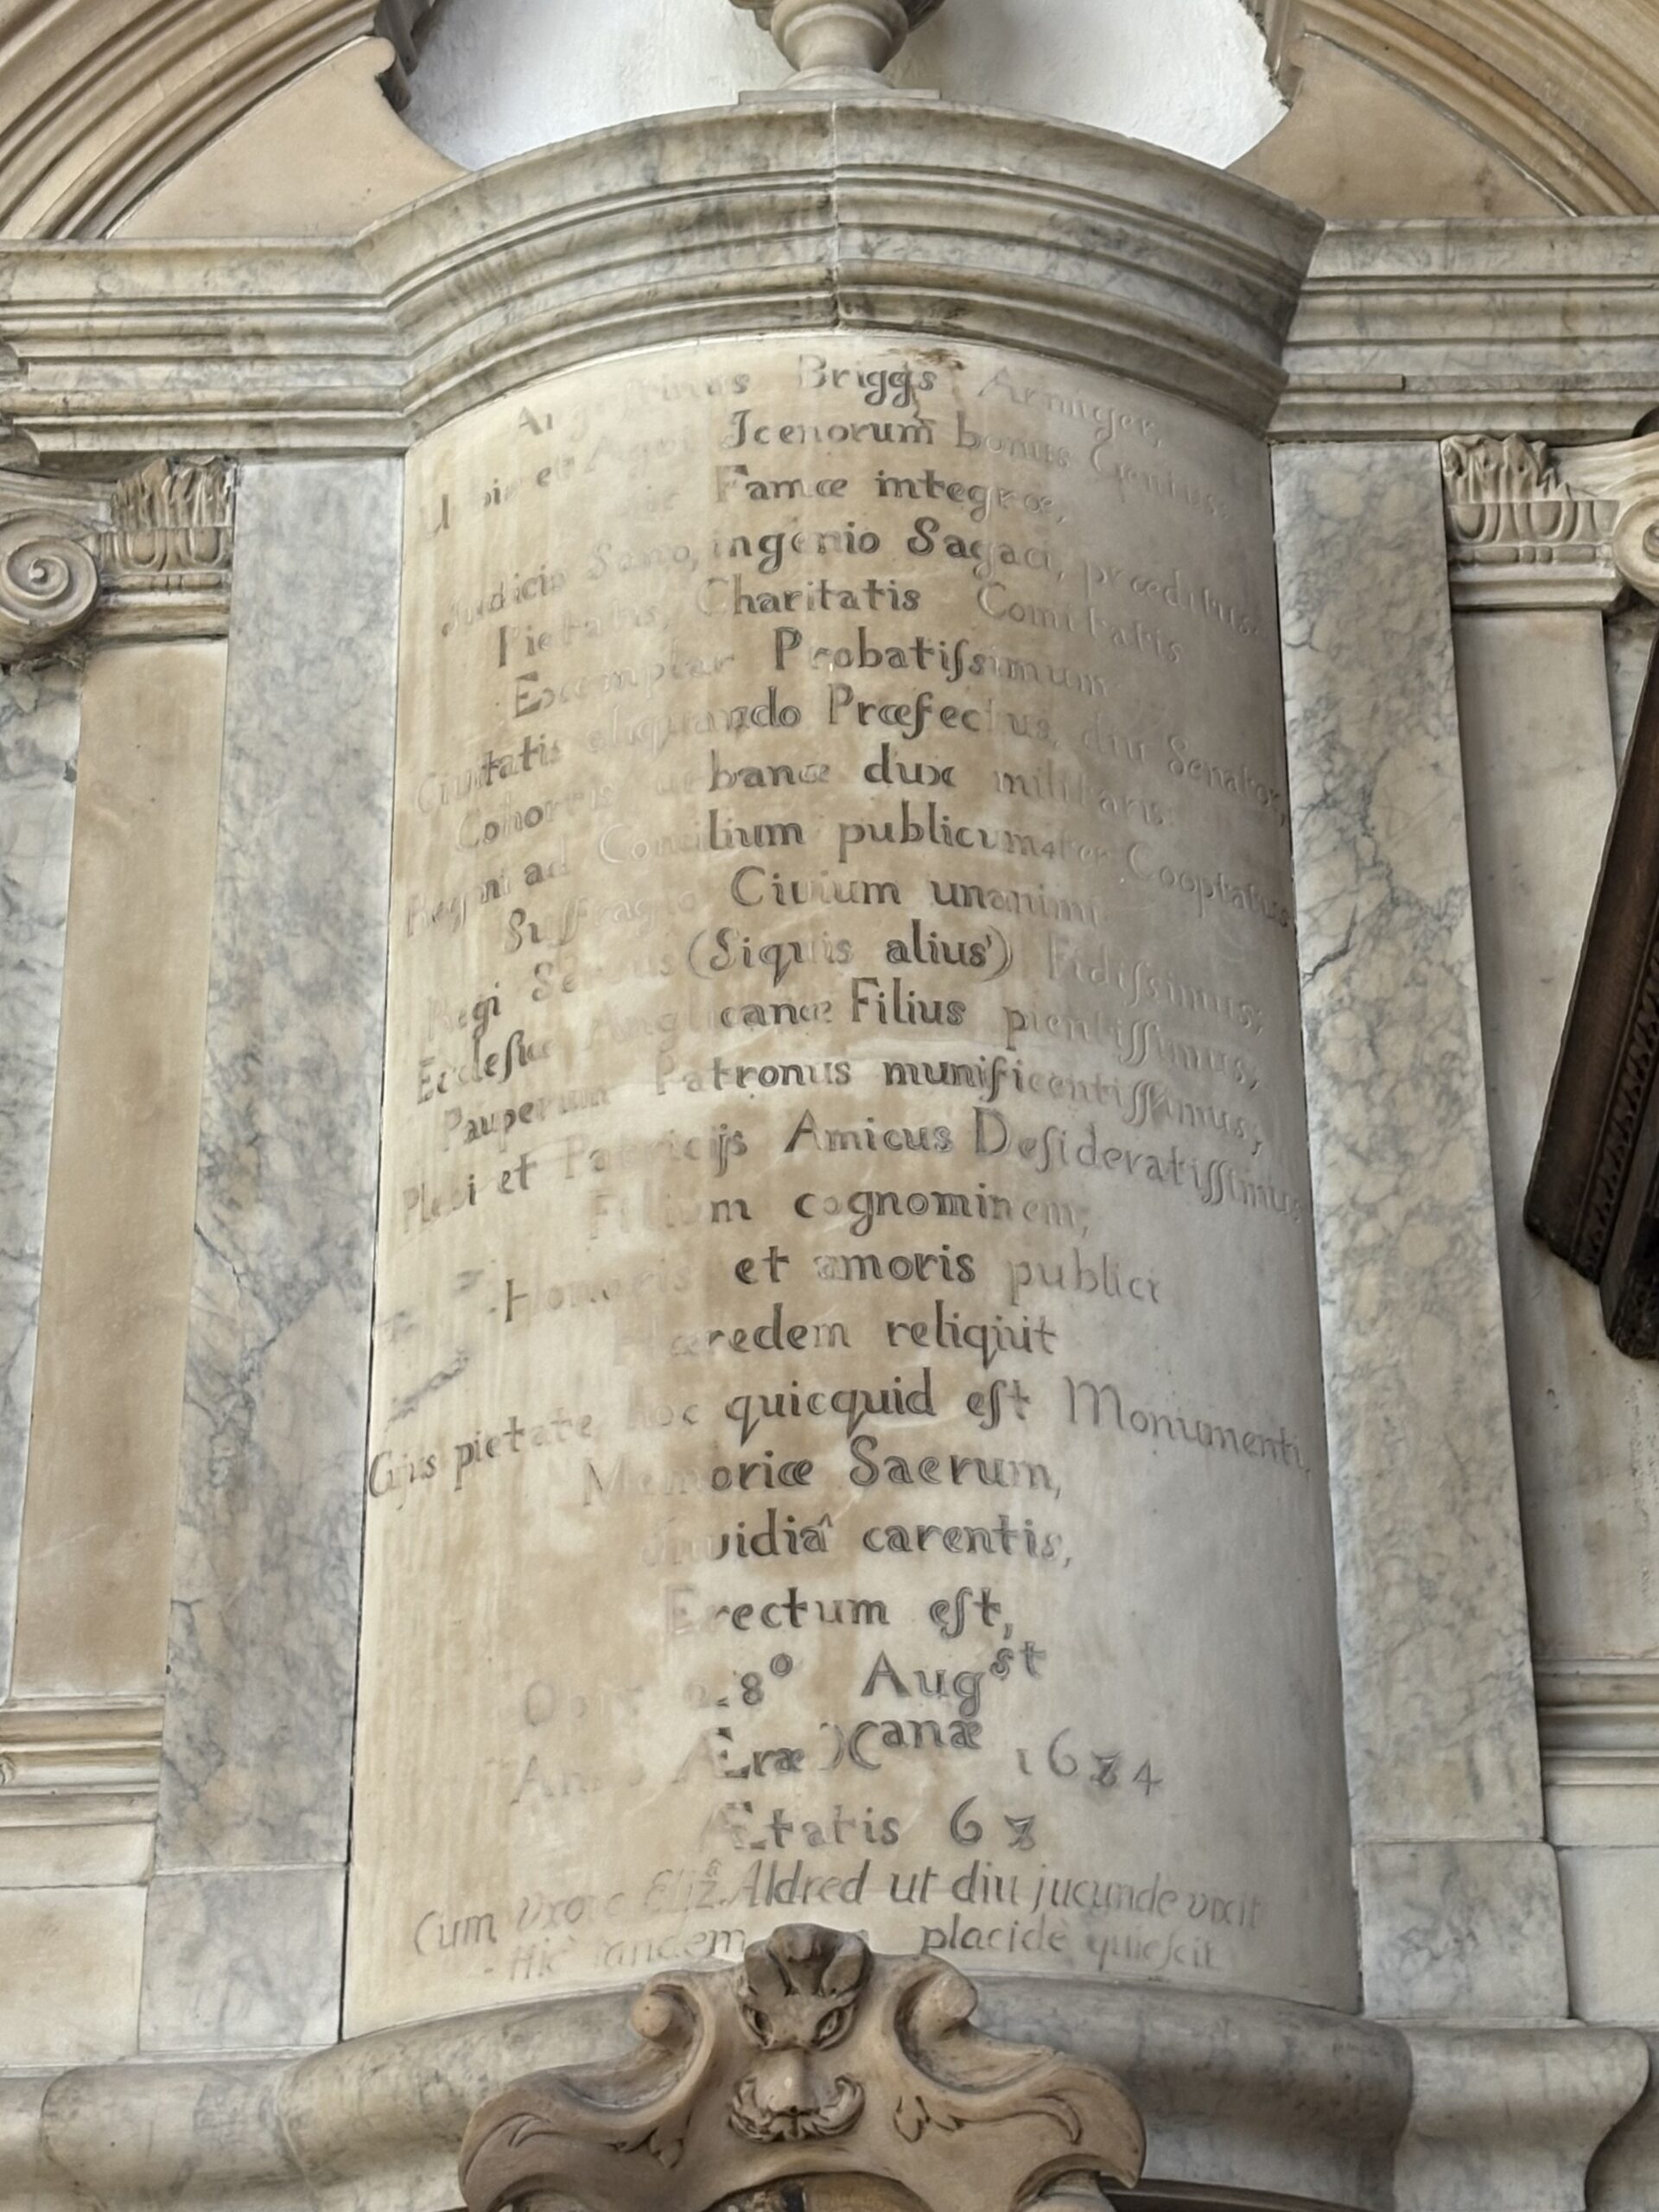 Augustinus Briggs Armiger,
Urbis et Agri Jcenorum bonus Genius.
Famæ integræ,
Judicio Sano, ingenio Sagaci, præditus.
Pietatis, Charitatis Comitatis
Exemplar Probatiſsimum
Ciuitatis aliquando Præfectus, diu Senator,
Cohortis urbanæ dux militaris
Regni ad Concilium publicum Cooptatus
Suffragio Ciuium unanimi
Regi Seruus (Siquis alius) Fidiſsimus;
Eccleſiæ Anglicanæ Filius pientiſſimus,
Pauperum Patronus munificentiſſimus;
Plebi et Patricijs Amicus Deſideratiſſimus
Filium cognominem,
Honoris et amoris publici
Hæredem reliqiut
Cujus pietate hoc quicquid eſt Monumenti,
Memoriæ Sacrum,
Inuidiâ carentis,
Erectum eſt,
Obijt 28º Augst
Anno Æræ Xanæ 1684
Ætatis 67
Cum Uxore Eliz. Aldred ut diu jucunde vixit
Hic tandem placidè quieſcit